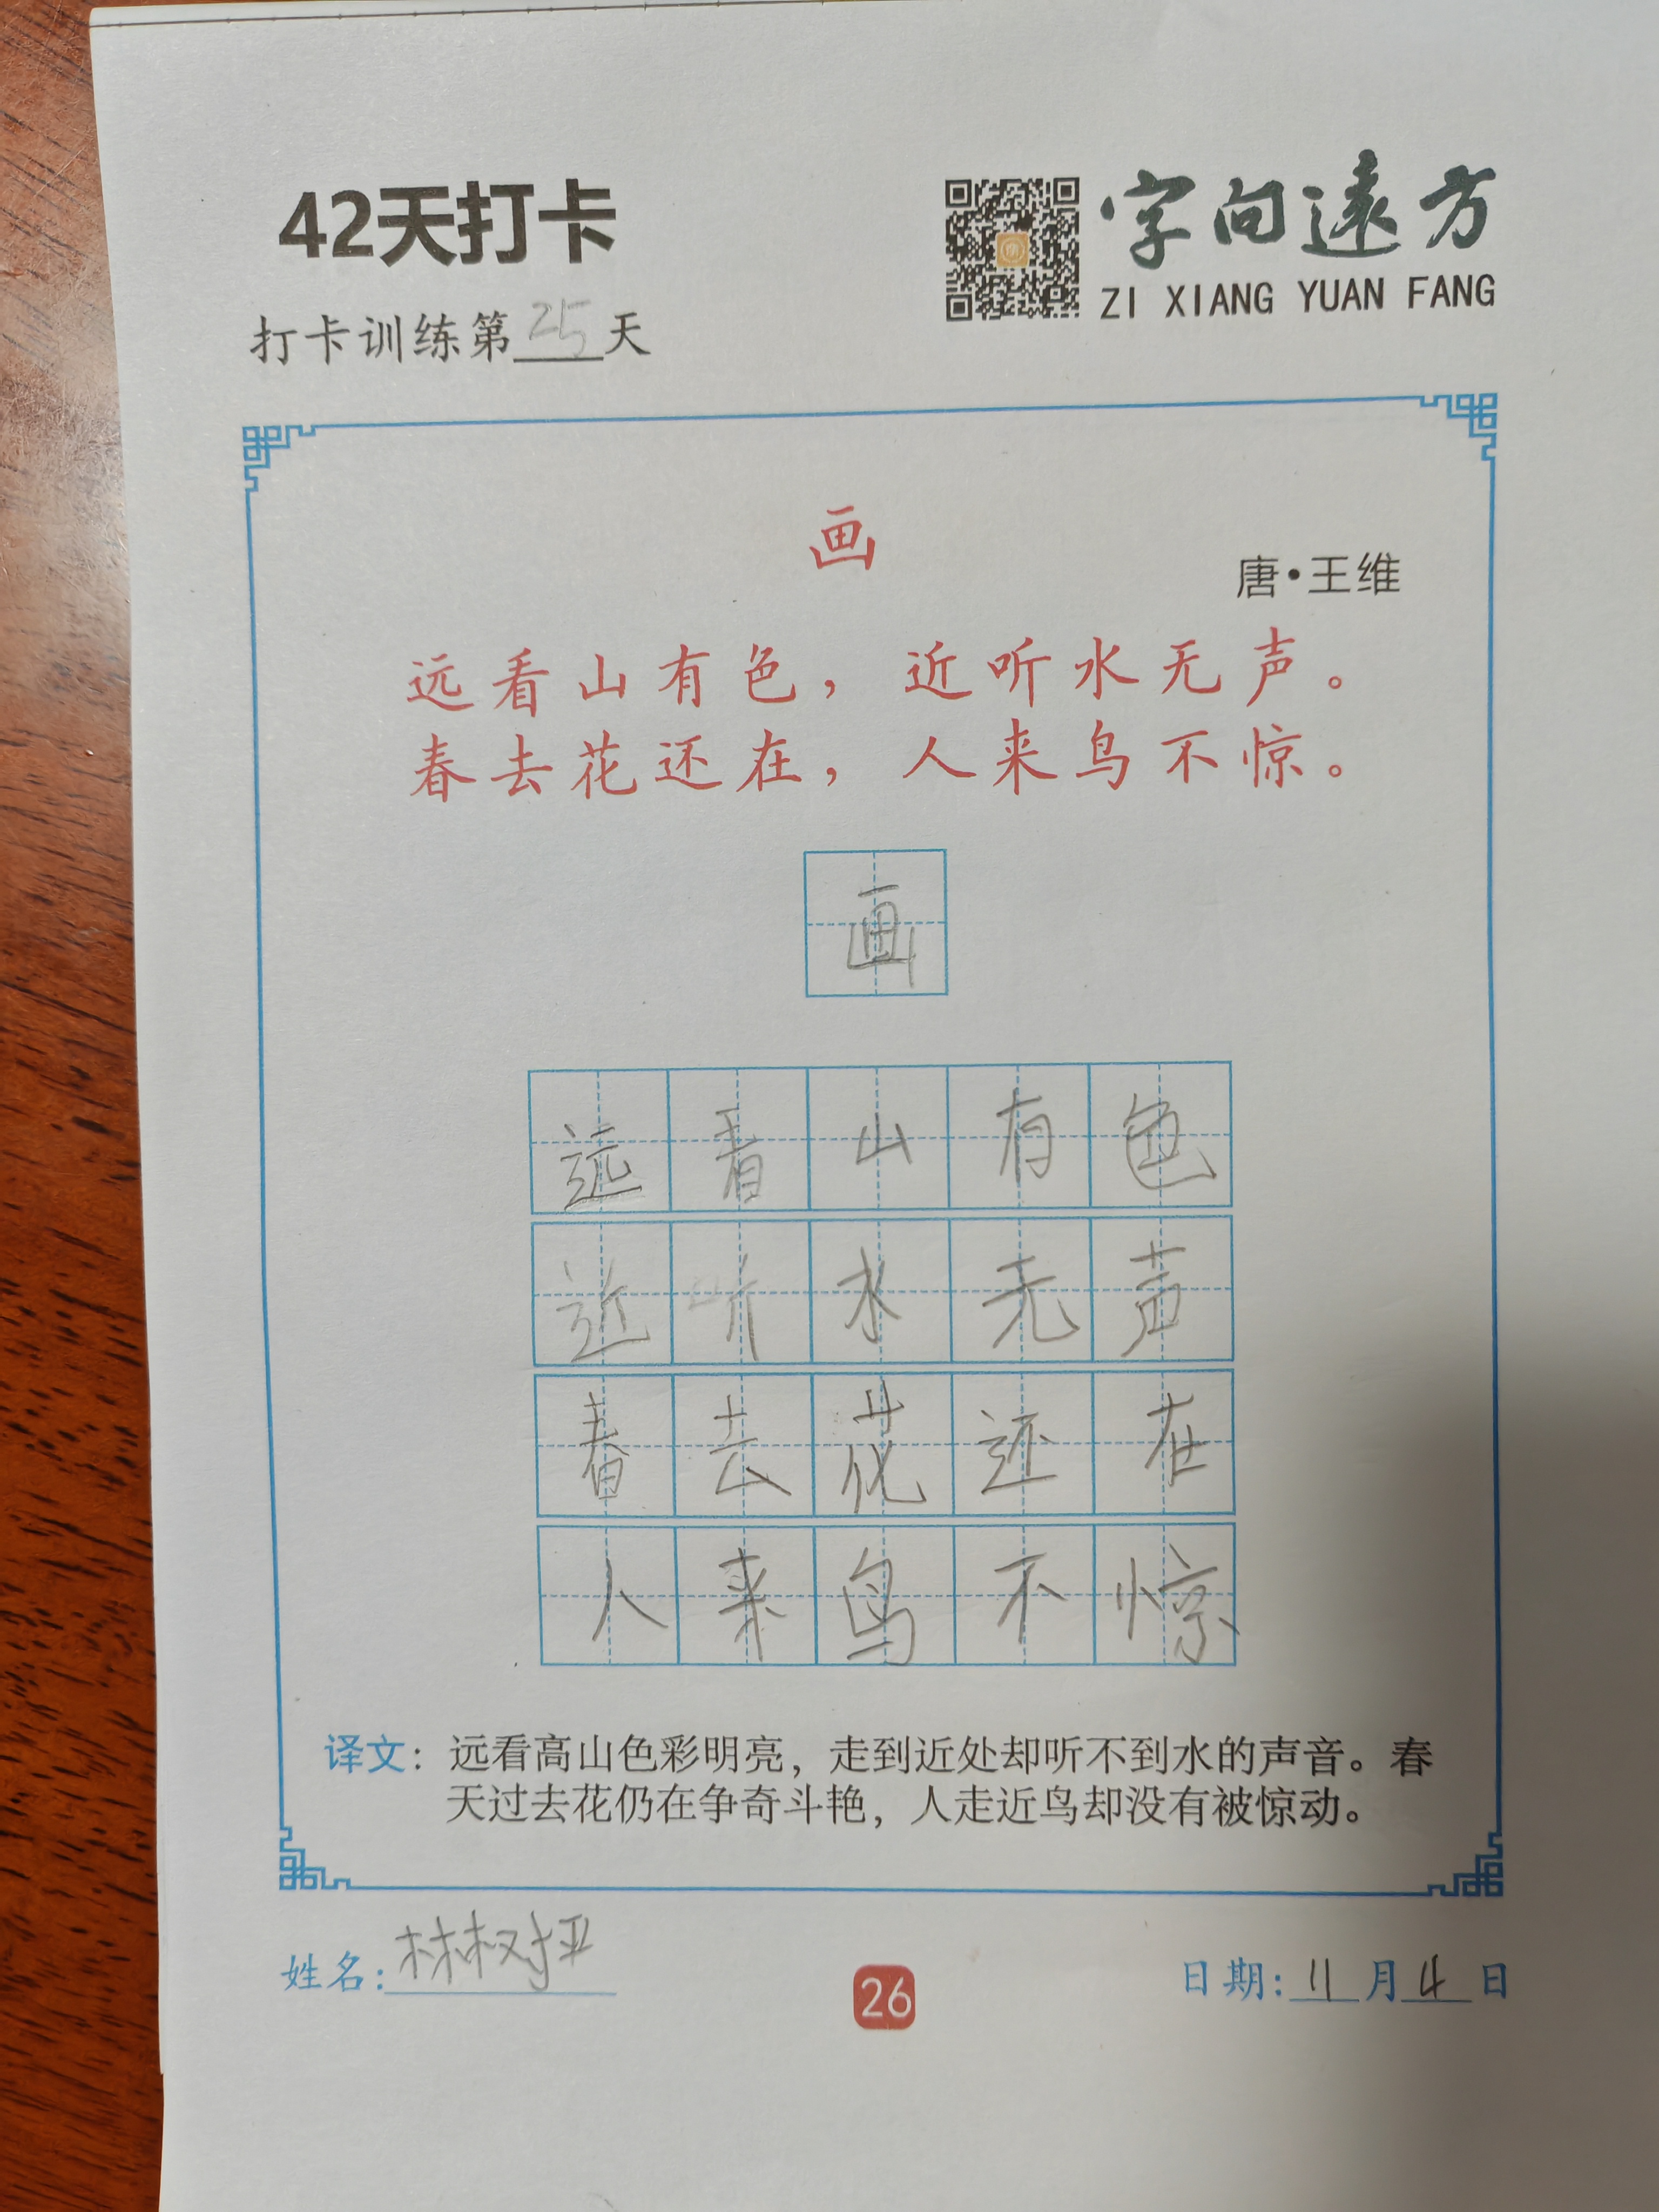 42天打卡
字向遠方
ZI XIANG YUAN FANG
打卡训练第25天
画
唐·王维
远看山有色，近听水无声。
春去花还在，人来鸟不惊。
画
远看山有色
近听水无声
春去花还在
人来鸟不惊
译文：远看高山色彩明亮，走到近处却听不到水的声音。春
天过去花仍在争奇斗艳，人走近鸟却没有被惊动。
姓名：林树
26
日期：11月4日